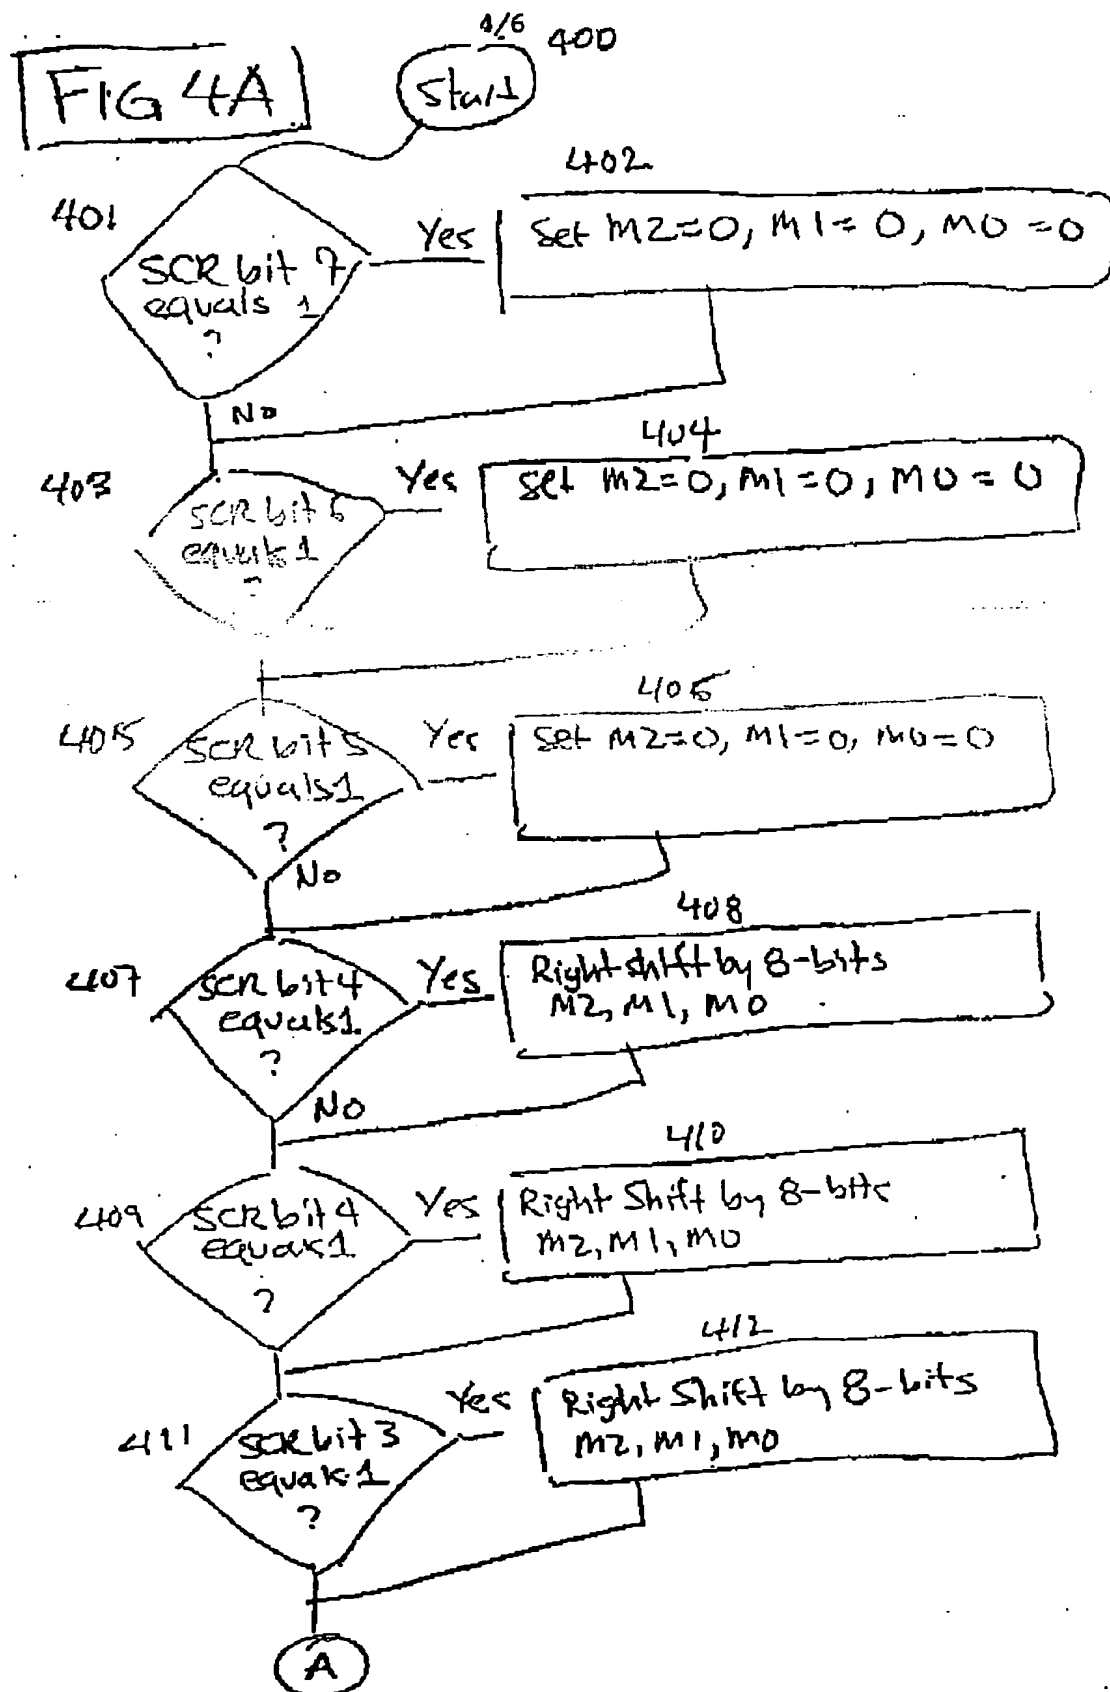 4/6
400
FIG 4A
Start
402
401
SCR bit 7
equals 1
?
Yes
Set M2=0, M1=0, M0=0
No
404
403
SCR bit 6
equals 1
?
Yes
Set M2=0, M1=0, M0=0
406
405
SCR bit 5
equals 1
?
Yes
Set M2=0, M1=0, M0=0
No
408
407
SCR bit 4
equals 1
?
Yes
Right shift by 8-bits
M2, M1, M0
No
410
409
SCR bit 4
equals 1
?
Yes
Right Shift by 8-bits
M2, M1, M0
412
411
SCR bit 3
equals 1
?
Yes
Right Shift by 8-bits
M2, M1, M0
A